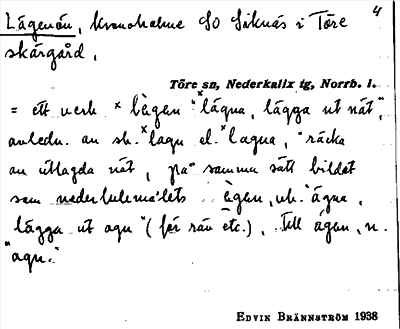 Lägenön, kronoholme SO Siknäs i Töre 4
skärgård.
Töre sn, Nederkalix tg, Norrb. l.
= ett verb *lègen "*lägna, lägga ut nät",
avledn. av sb. *lagn el. *lagna, "räcka
av utlagda nät, på" samma sätt bildat
som nederkulemålets ègen, vb. "ägna,
lägga ut agn" (för räv etc.), till ágen, n.
"agn."
EDVIN BRÄNNSTRÖM 1938